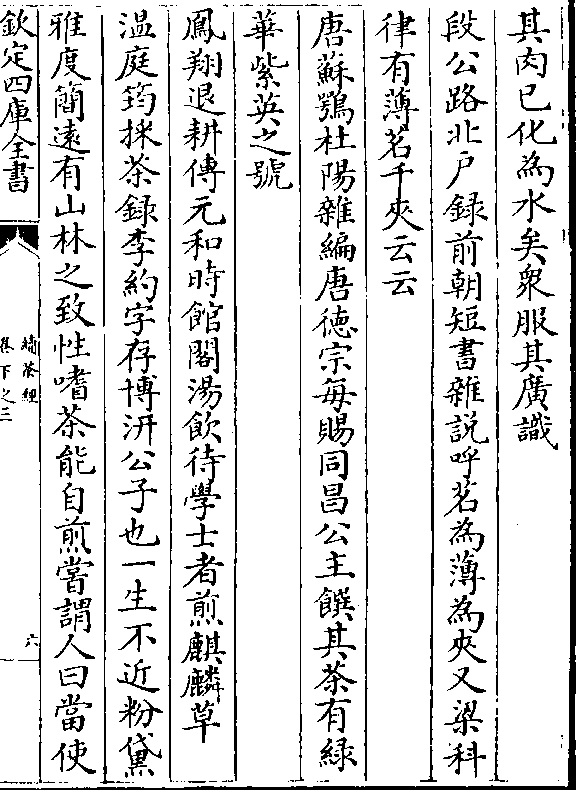 其肉已化為水矣衆服其廣識
段公路北戶録前朝短書雜説呼茗為薄為夾又梁科
律有薄茗千夾云云
唐蘇鶚杜陽雜編唐徳宗每賜同昌公主饌其茶有緑
華紫英之號
鳳翔退耕傳元和時館閣湯飲待學士者煎麒麟草
温庭筠採茶録李約字存博汧公子也一生不近粉黛
雅度簡遠有山林之致性嗜茶能自煎嘗謂人曰當使
欽定四庫全書
續茶經
卷下之三
六